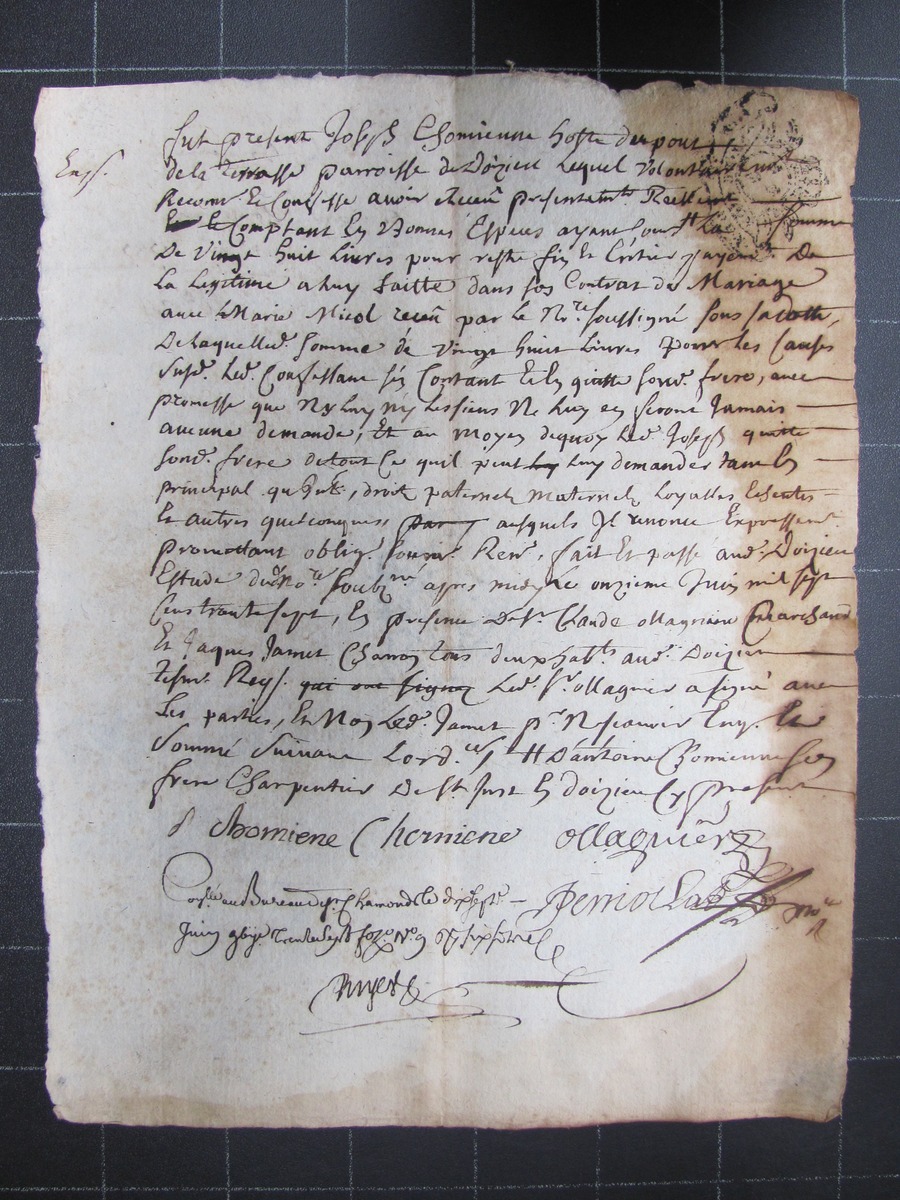 fut present Joseph Chomienne hoste du pont
de la terrasse parroisse de Doizieu lequel volontairement
Reconn. et Confesse avoir Receu presentemt. Reellemt.
et le Comptant En bonnes Especes ayant Cours # La Somme
De vingt huit livres pour reste fin et Entier payemt. De
La Legitime a luy faitte dans son Contrat de Mariage
avec Marie Nicol receu par le Nre. soussigné sous sa datte,
De laquelle d. Somme de vingt huit livres pour les Causes
Susd. Led. Confessant s'en Contant et En quitte sond. frere, avec
promesse que Ny luy ny Les siens Ne luy en feront Jamais
aucune demande, Et au moyen dequoy Led. Joseph quitte
sond. frere de tout Ce quil peut luy demander tant En
principal qu' droit paternels maternels Loyalles
Et autres quelconques par ausquels Il renonce Expressemt.
promettant oblig. soumis. Ren. fait Et passé aud. Doizieu
Estude dud. Nore. Soubzne. apres midy le onzieme Juin mil sept
Cens trente sept, En presence De Sr. Claude ollagnier Marchand
Et Jaques Jamet Charron tous deux habts. aud. Doizieu
tesm. Reqs. qui ont signé Led. Sr. ollagnier a signé avec
Les parties, Et Non Led. Jamet pr. Ne scavoir Enq. Et
Sommé Suivant Lord. ces # D'antoine Chomienne son
frere Charpentier De St. Just En doizieu Cy present
J Chomiene Chemiene ollagnier
Conlé au Bureau de St. Chamond le dix sept
Juin